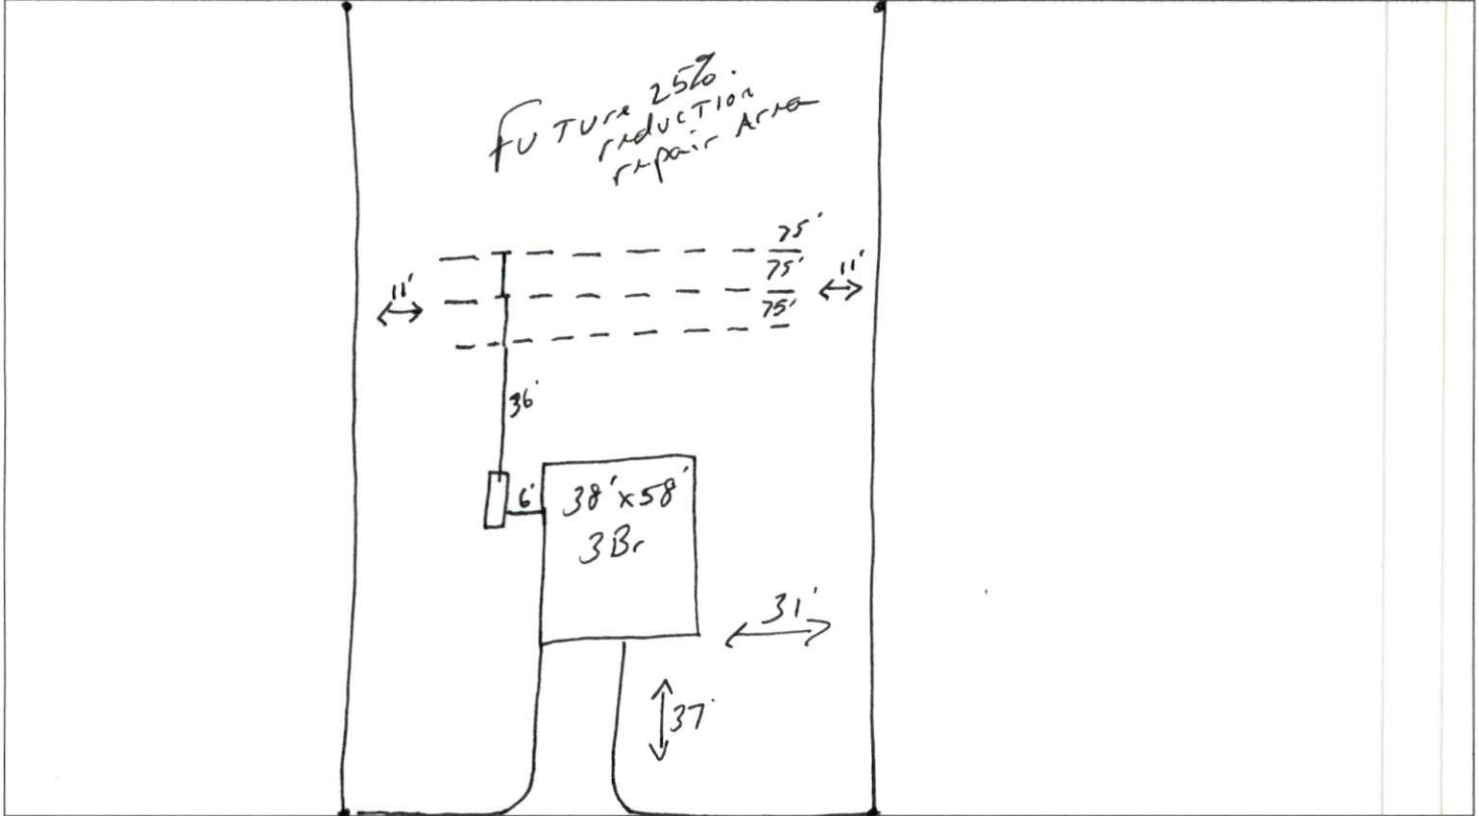 Future 25%.
reduction
repair Area
75'
75'
75'
11'
11'
36'
6'
38' x 58'
3 Br
31'
37'